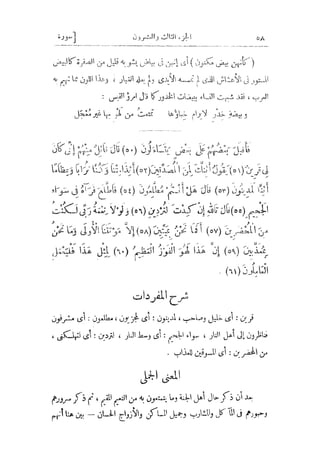 ٥٨ الجزء الثالث والعشرون [سورة
( كأنهن بيض مكنون ) أي إنهن في بياض يشوبه قليل من الصفرة كالبيض
المستور في الأعشاش الذي لم تمسه الأيدي ولم يعله الغبار ، وهذا اللون مما تهيم به
العرب ، فقد شبهت النساء ببيضات الخدور كما قال امرؤ القيس :
وبيضة خدر لا يرام خباؤها تمتعت من لهو بها غير معجل
فأقبل بعضهم على بعض يتساءلون (٥٠) قال قائل منهم إني كان
لي قرين (٥١) يقول أئنك لمن المصدقين (٥٢) أئذا متنا وكنا ترابا وعظاما
أئنا لمدينون (٥٣) قال هل أنتم مطلعون (٥٤) فاطلع فرآه في سواء
الجحيم (٥٥) قال تالله إن كدت لتردين (٥٦) ولولا نعمة ربي لكنت
من المحضرين (٥٧) أفما نحن بميتين (٥٨) إلا موتتنا الأولى وما نحن
بمعذبين (٥٩) إن هذا لهو الفوز العظيم (٦٠) لمثل هذا فليعمل
العاملون (٦١) .
شرح المفردات
قرين : أي خليل وصاحب ، لمدينون : أي لمجزيون ، مطلعون : أي مشرفون
فناظرون إلى أهل النار ، سواء الجحيم : أي وسط النار ، لتردين : أي لتهلكني ،
من المحضرين : أي المسوقين للعذاب .
المعنى الجملي
بعد أن ذكر حال أهل الجنة وما يتمتعون به من النعيم المقيم ، ثم ذكر سرورهم
وحبورهم في المآكل والمشارب وجميل المساكن والأزواج الحسان — بين هنا أنهم